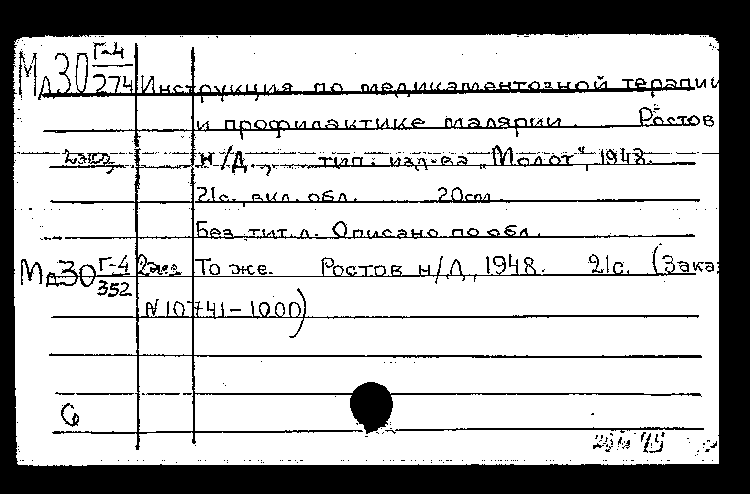 Мд30 Г-4/274 Инструкция по медикаментозной терапии
и профилактике малярии. Ростов
2 экз. н/Д., тип. изд-ва "Молот", 1948.
21с., вкл. обл. 20см
Без тит. л. Описано по обл.
Мд30 Г-4/352 2экз То же. Ростов н/Д, 1948. 21с. (Зака
N 10741-1000)